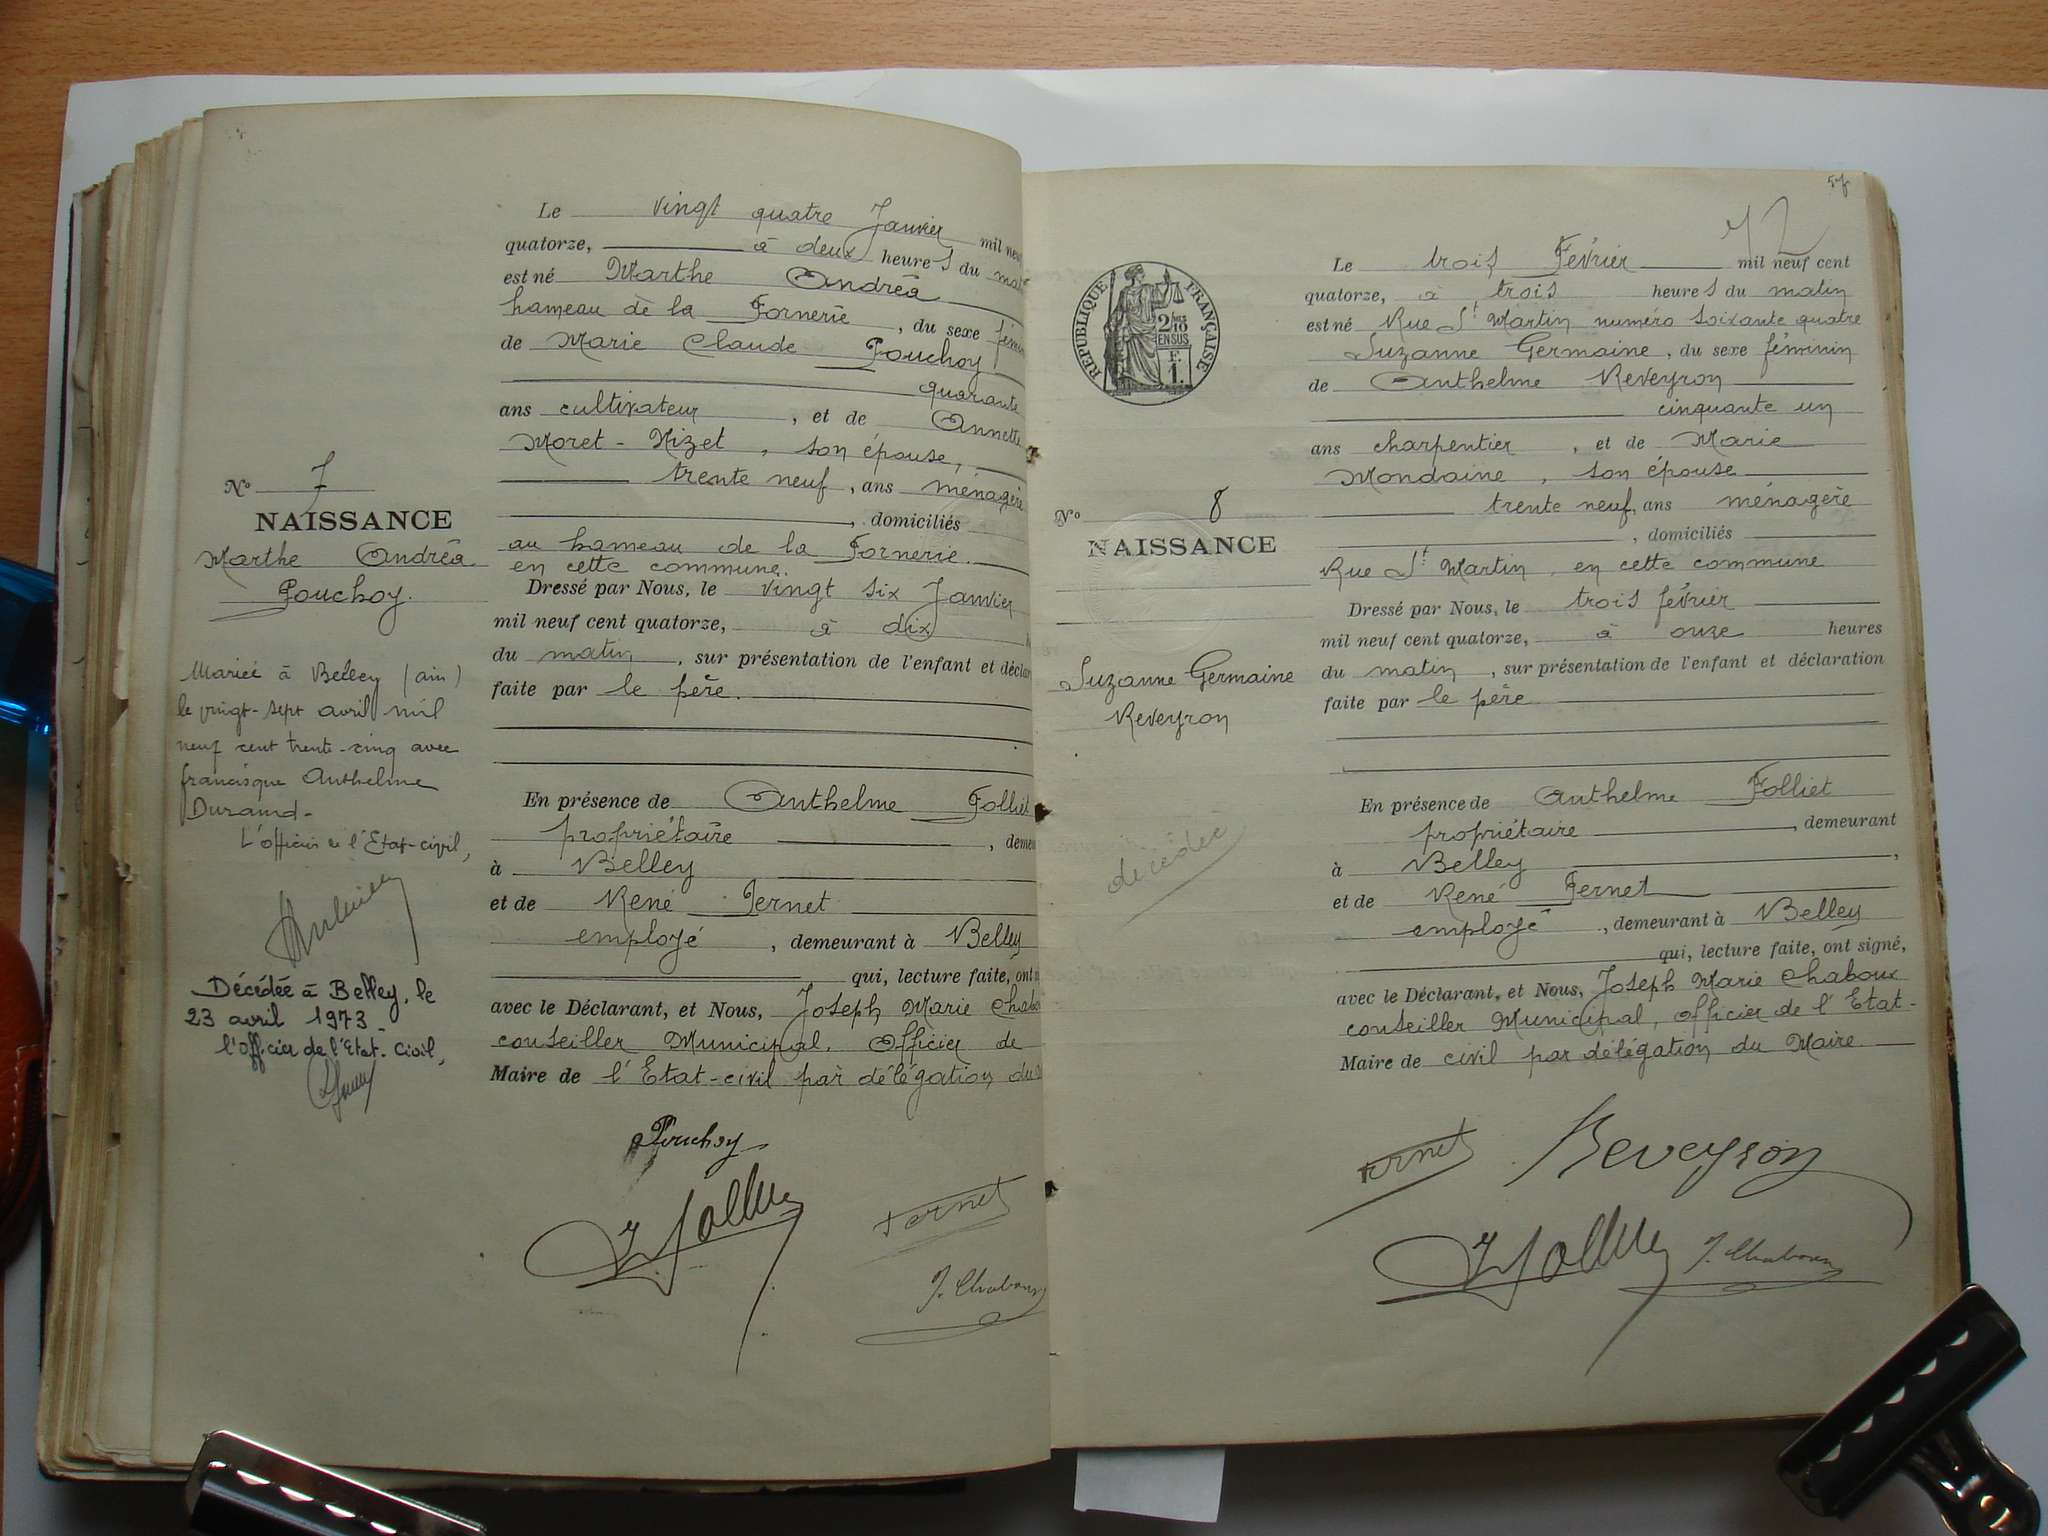 Le vingt quatre Janvier mil neuf
quatorze, à deux heures du mat
est né Marthe Andréa
hameau de la Fornerie, du sexe fémin
de Marie Claude Pouchoy
quarante
ans cultivateur, et de Annette
Moret-Mizet, son épouse,
trente neuf, ans ménagère
, domiciliés
au hameau de la Fornerie.
en cette commune.
Dressé par Nous, le vingt six Janvier
mil neuf cent quatorze, à dix
du matin, sur présentation de l'enfant et déclar
faite par le père.
En présence de Anthelme Folliet
propriétaire, demeu
à Belley
et de René Fernet
employé, demeurant à Belley
qui, lecture faite, ont
avec le Déclarant, et Nous, Joseph Marie Chabo
conseiller Municipal. Officier de
Maire de l'Etat-civil par délégation du
Pouchoy
Fernet
J. Chaboux
No 7
NAISSANCE
Marthe Andréa
Pouchoy.
Mariée à Belley (ain)
le vingt-sept avril mil
neuf cent trente-cinq avec
francisque Anthelme
Durand-
L'officier de l'Etat-civil,
Décédée à Belley, le
23 avril 1973-
l'officier de l'Etat-Civil,
RÉPUBLIQUE FRANÇAISE
2/10
EN SUS
F.
1.
Le trois Février mil neuf cent
quatorze, à trois heures du matin
est né Rue St Martin numéro soixante quatre
Suzanne Germaine, du sexe féminin
de Anthelme Reveyron
cinquante un
ans charpentier, et de Marie
Mondaine, son épouse
trente neuf, ans ménagère
, domiciliés
Rue St Martin, en cette commune
Dressé par Nous, le trois février
mil neuf cent quatorze, à onze heures
du matin, sur présentation de l'enfant et déclaration
faite par le père
En présence de Anthelme Folliet
propriétaire, demeurant
à Belley,
et de René Fernet
employé, demeurant à Belley
qui, lecture faite, ont signé,
avec le Déclarant, et Nous, Joseph Marie Chaboux
conseiller Municipal, officier de l'Etat-
Maire de civil par délégation du Maire
Fernet Reveyron
J. Chaboux
No 8
NAISSANCE
Suzanne Germaine
Reveyron
décédée